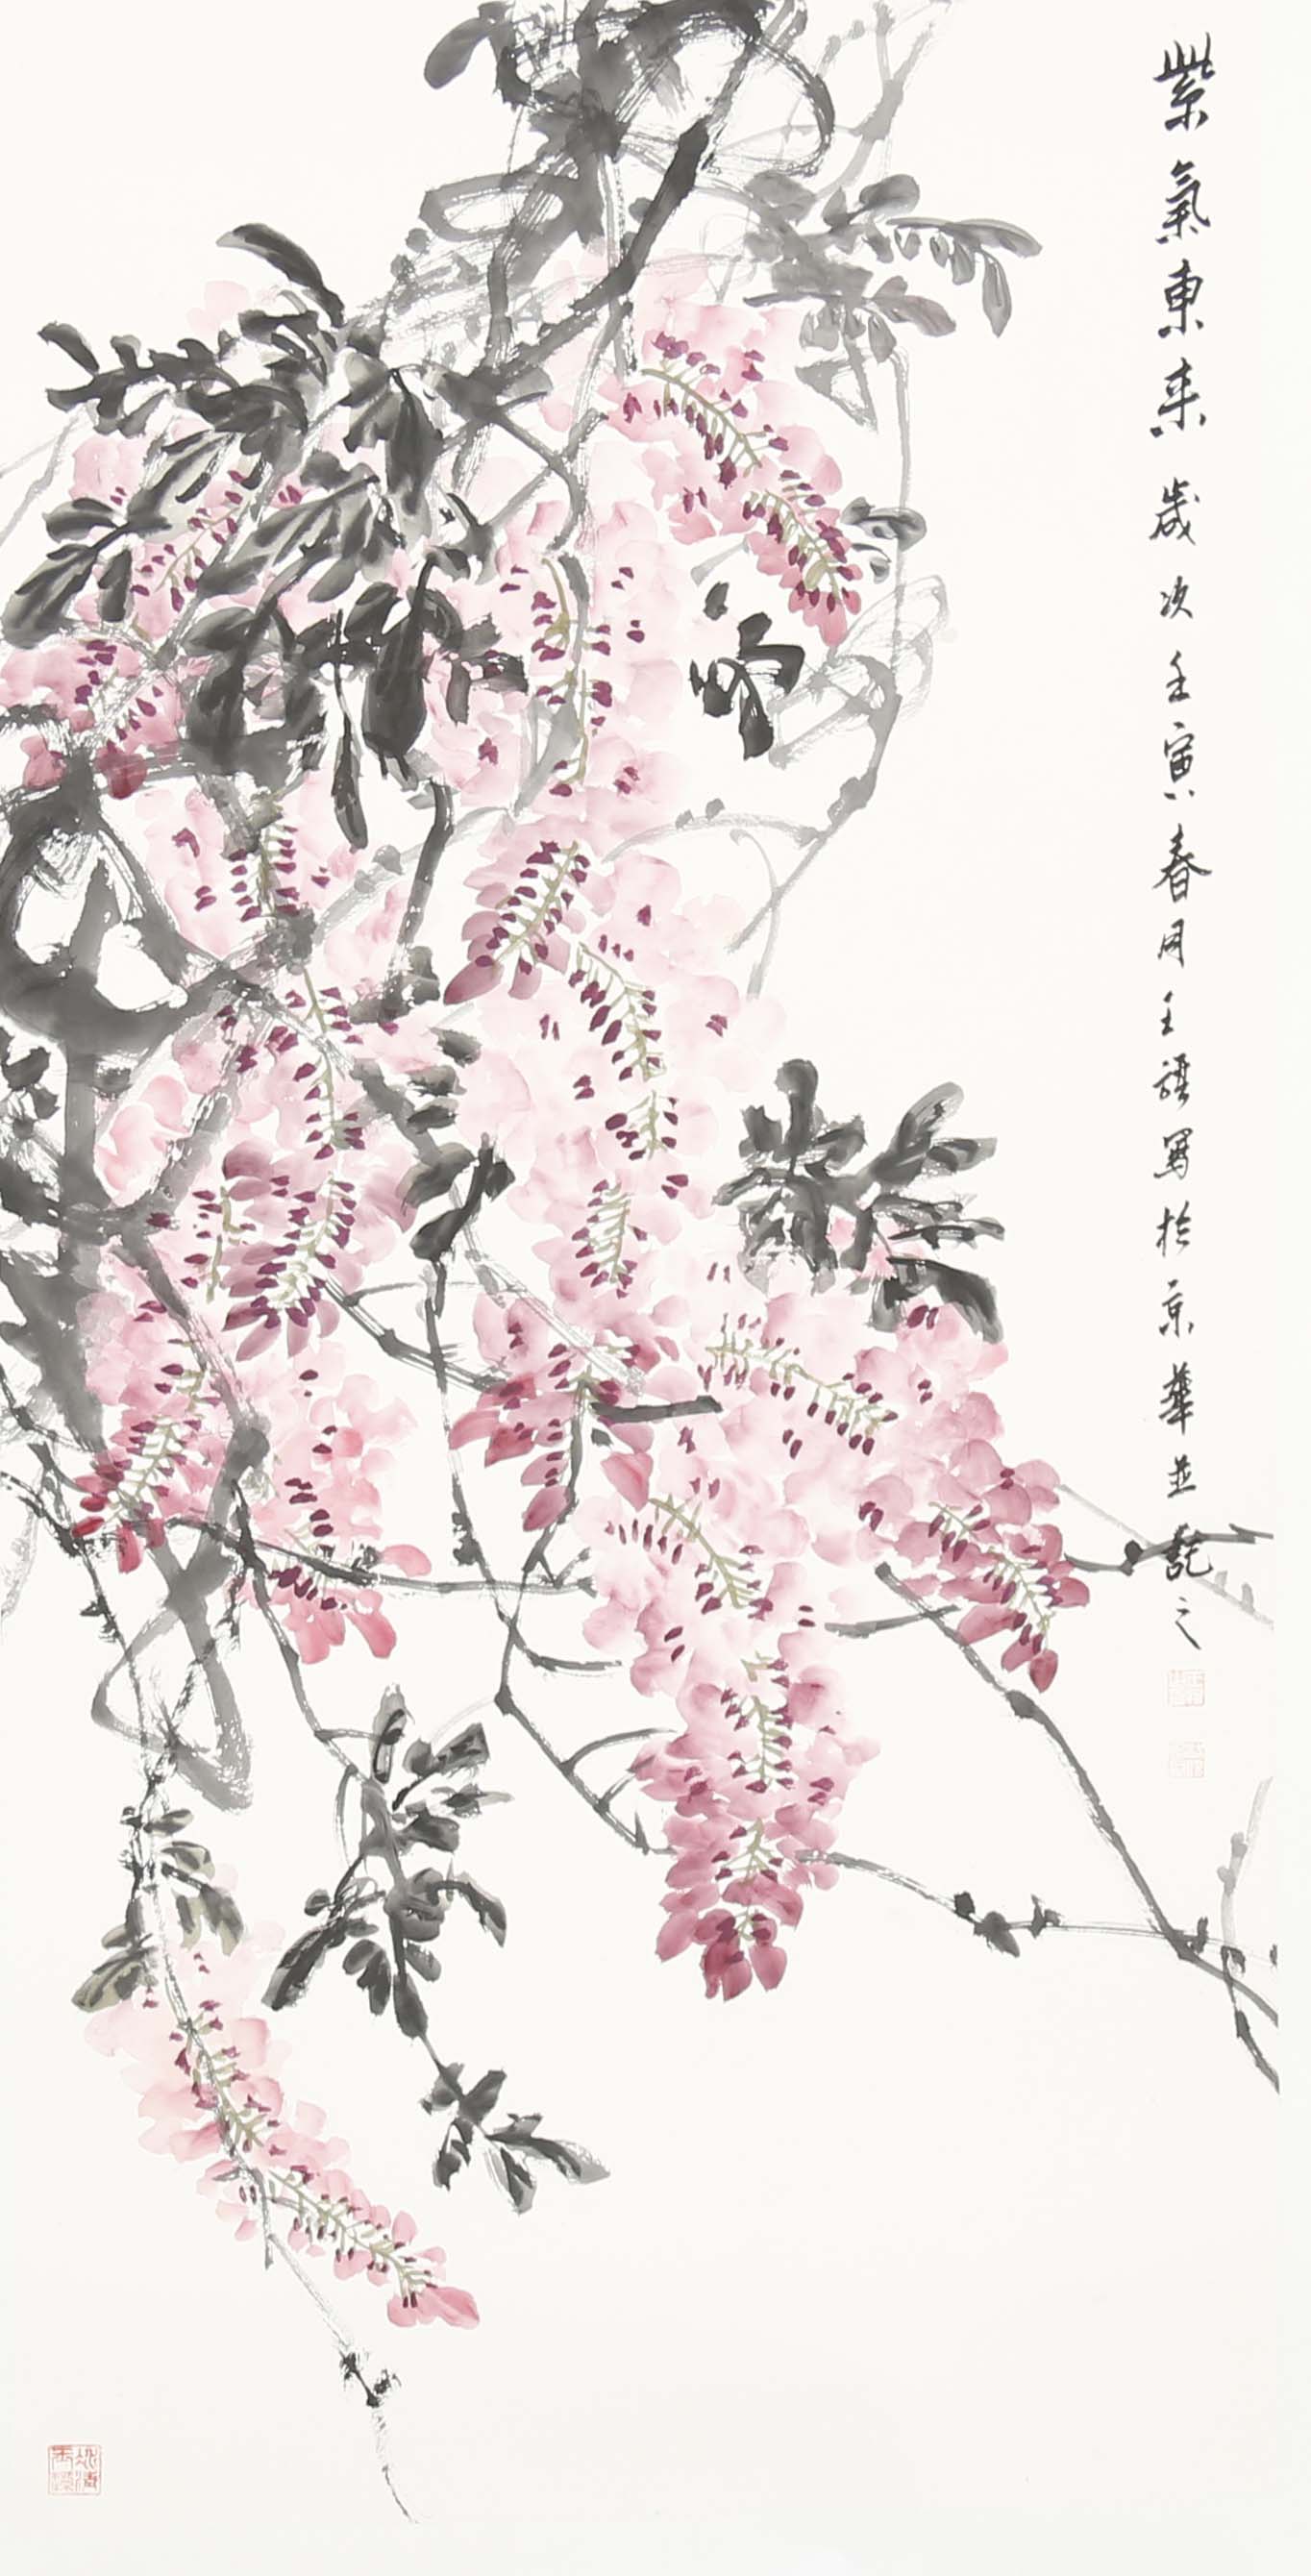 紫氣東来 歲次壬寅春月王語寫於京華並記之